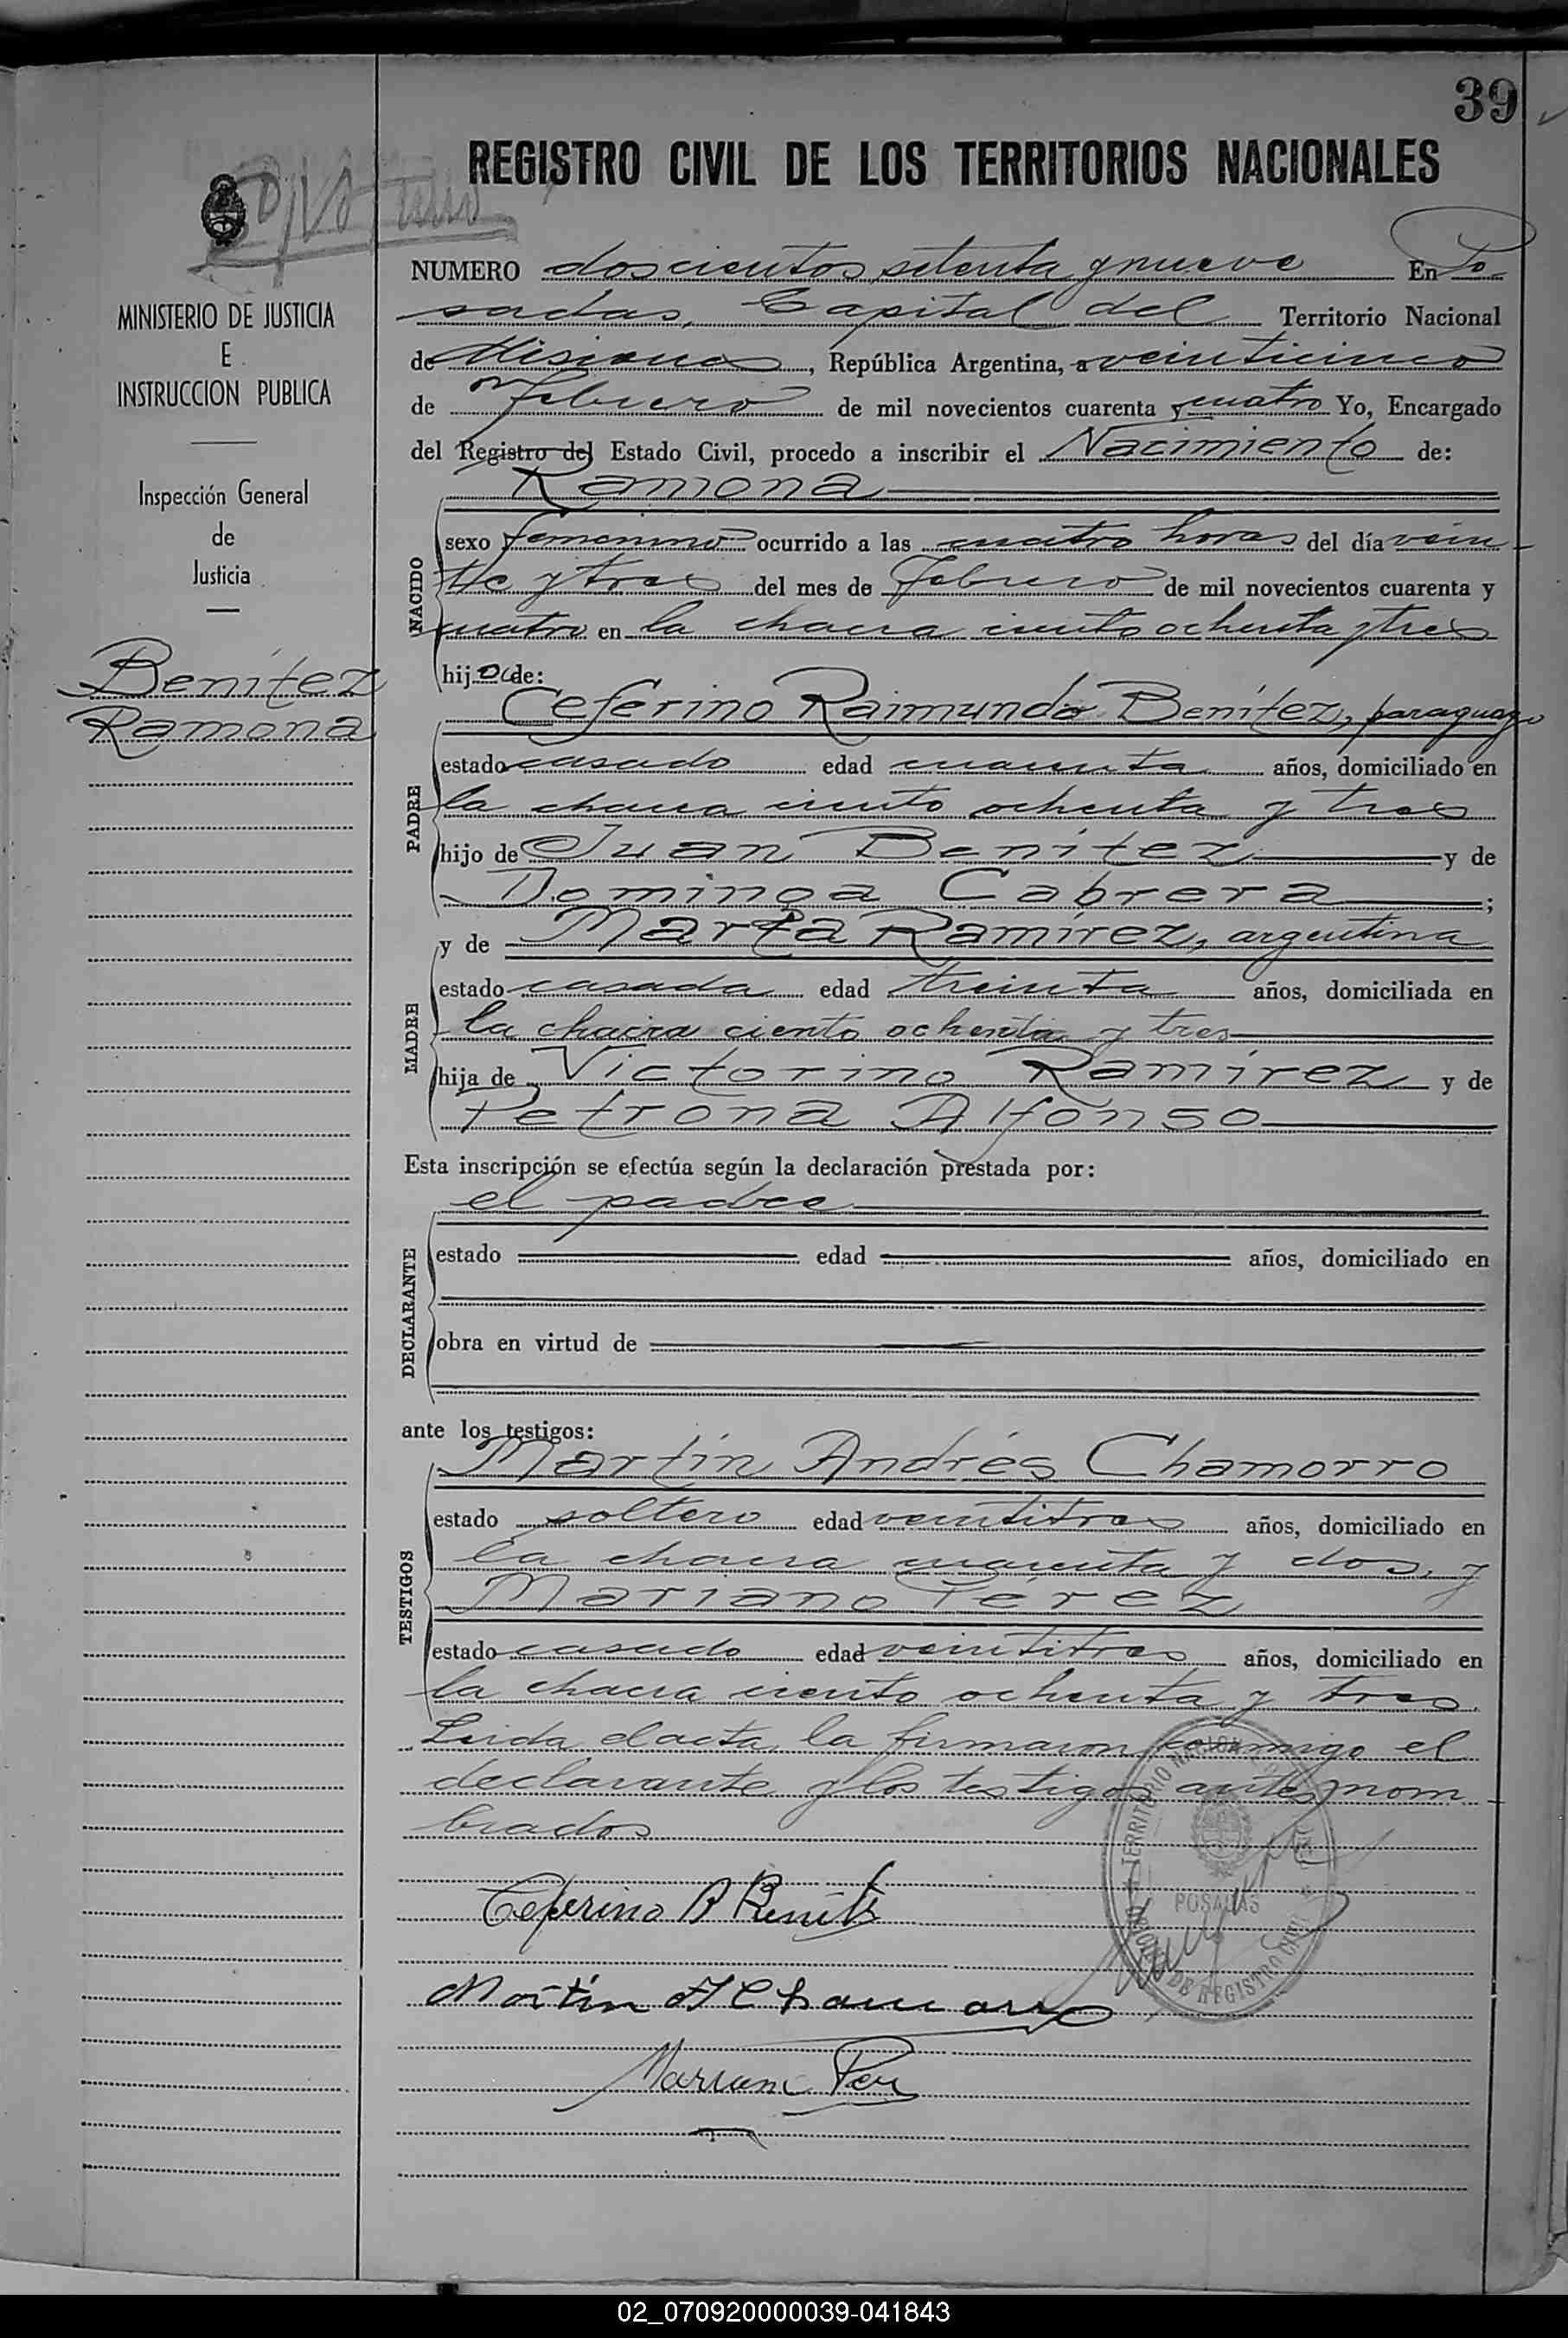 39
REGISTRO CIVIL DE LOS TERRITORIOS NACIONALES
MINISTERIO DE JUSTICIA
E
INSTRUCCION PUBLICA
Inspección General
de
Justicia
Benítez
Ramona
NUMERO doscientos setenta y nueve En Po
sadas, Capital del Territorio Nacional
de Misiones, República Argentina, a veinticinco
de Febrero de mil novecientos cuarenta y cuatro Yo, Encargado
del Registro del Estado Civil, procedo a inscribir el Nacimiento de:
Ramona
NACIDO
sexo femenino ocurrido a las cuatro horas del día vein
te y tres del mes de Febrero de mil novecientos cuarenta y
cuatro en la chacra ciento ochenta y tres
hija de:
Ceferino Raimundo Benítez, paraguayo
PADRE
estado casado edad cuarenta años, domiciliado en
la chacra ciento ochenta y tres
hijo de Juan Benítez y de
Dominga Cabrera;
y de Marta Ramírez, argentina
MADRE
estado casada edad treinta años, domiciliada en
la chacra ciento ochenta y tres
hija de Victorino Ramírez y de
Petrona Alfonso
Esta inscripción se efectúa según la declaración prestada por:
el padre
DECLARANTE
estado edad años, domiciliado en
obra en virtud de
ante los testigos:
Martín Andrés Chamorro
TESTIGOS
estado soltero edad veintitres años, domiciliado en
la chacra cuarenta y dos, y
Mariano Pérez
estado casado edad veintitres años, domiciliado en
la chacra ciento ochenta y tres.
Leida el acta, la firmaron conmigo el
declarante y los testigos antes nom
brados
TERRITORIO NACIONAL
POSADAS
DE REGISTRO CIVIL
Ceferino R Benítez
Martín A Chamorro
Mariano Perez
02_070920000039-041843